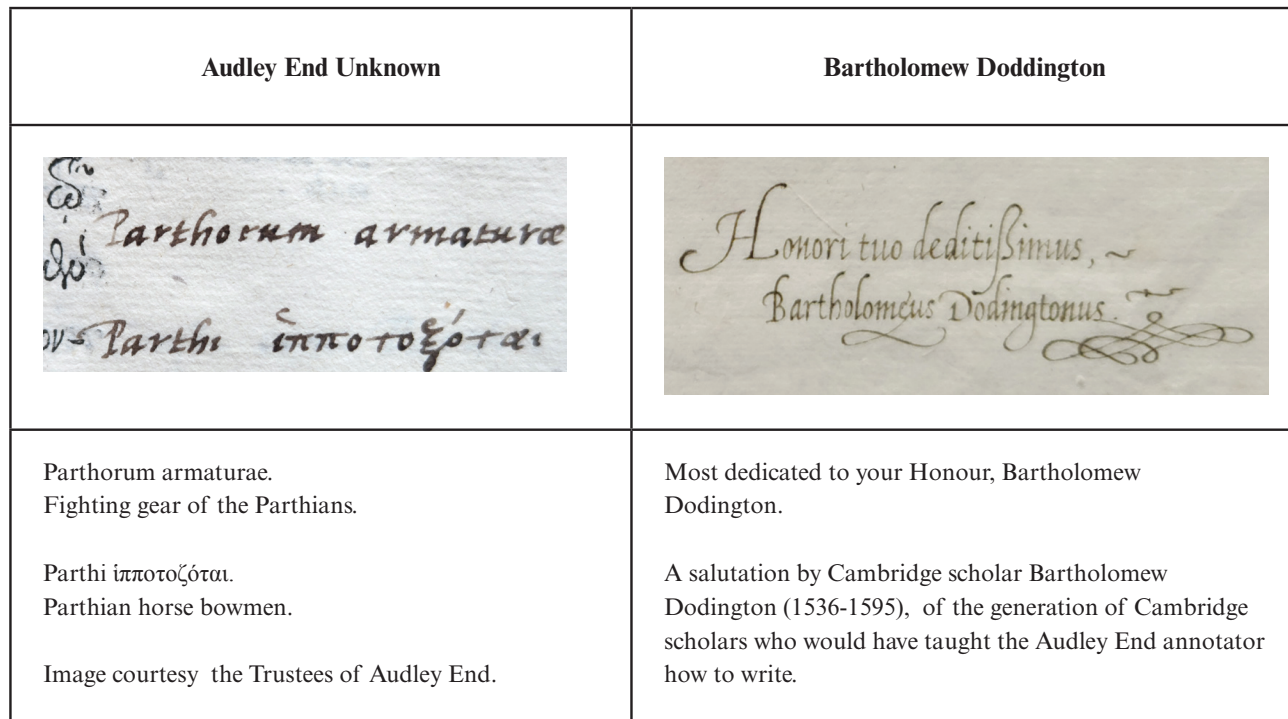 Audley End Unknown
Bartholomew Doddington
Parthorum armaturæ
Parthi ἱπποτοξόται
Honori tuo deditißimus,
Bartholomęus Dodingtonus.
Parthorum armaturae.
Fighting gear of the Parthians.
Parthi ἱπποτοζόται.
Parthian horse bowmen.
Image courtesy the Trustees of Audley End.
Most dedicated to your Honour, Bartholomew
Dodington.
A salutation by Cambridge scholar Bartholomew
Dodington (1536-1595), of the generation of Cambridge
scholars who would have taught the Audley End annotator
how to write.